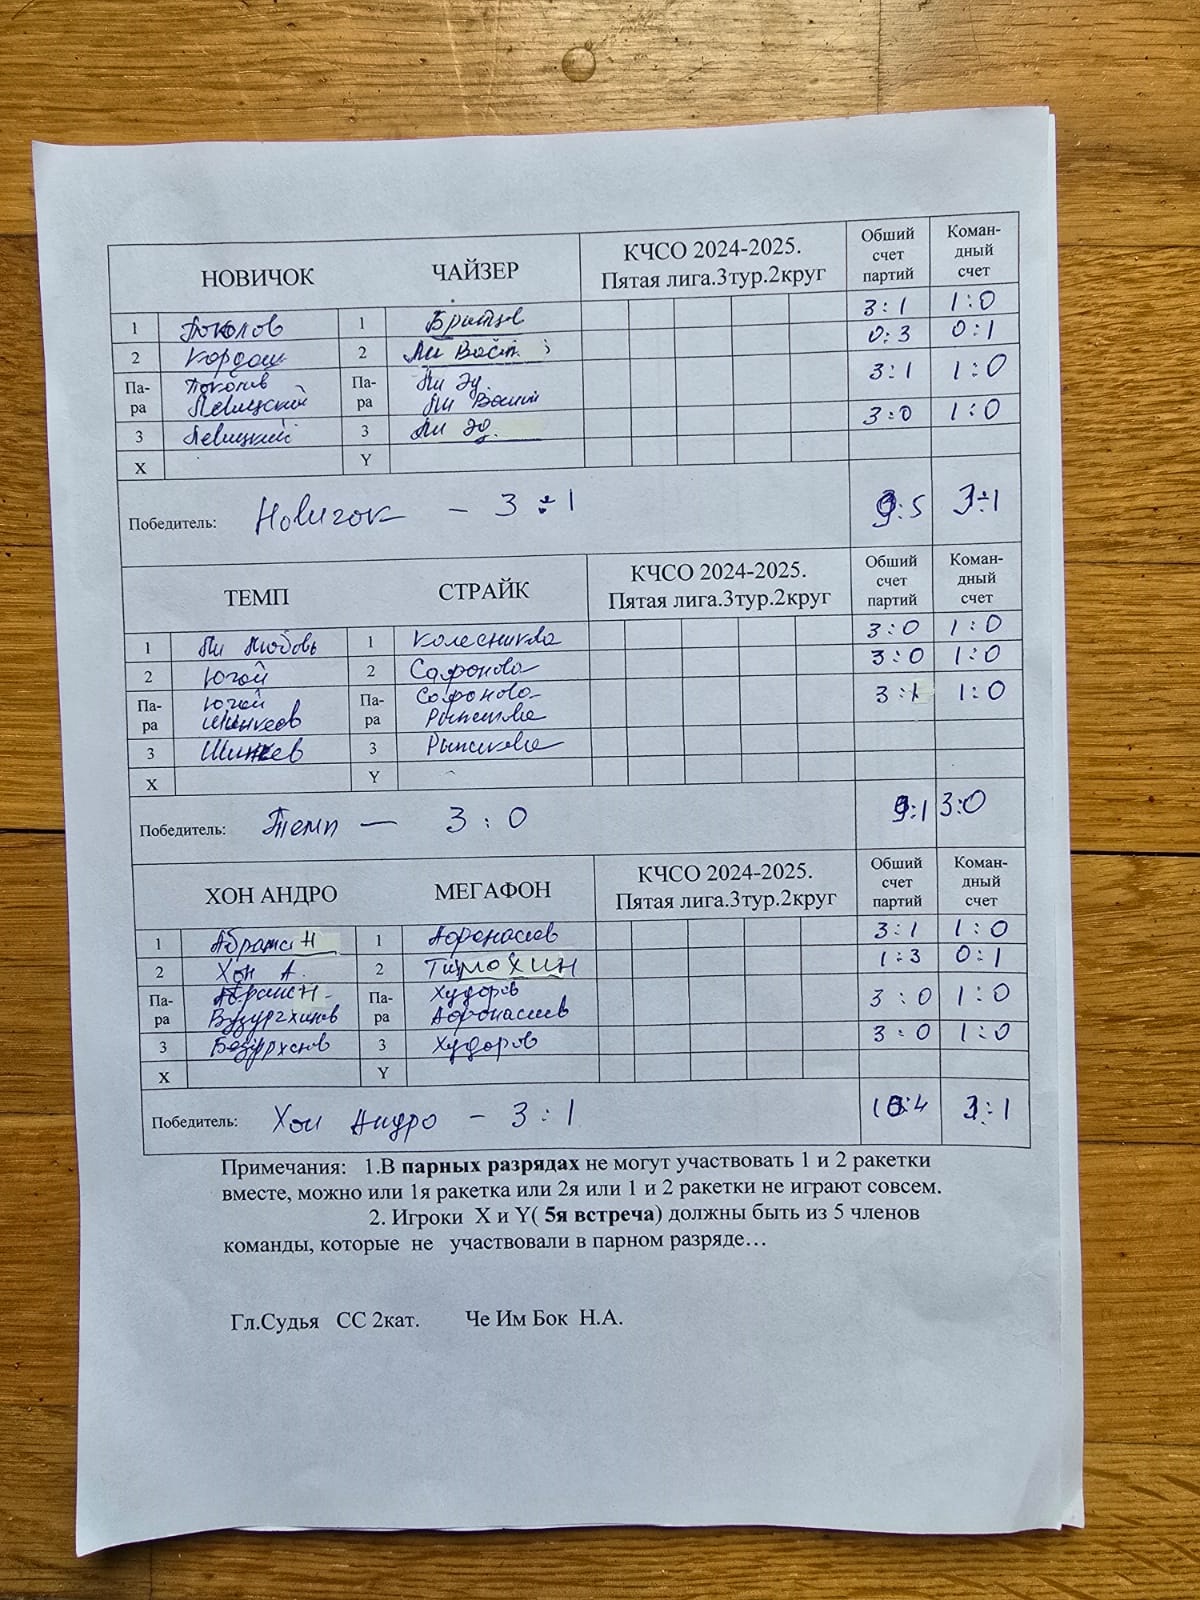 НОВИЧОК ЧАЙЗЕР КЧСО 2024-2025. Пятая лига.3тур.2круг Обший счет партий Коман-дный счет
1 Поколов 1 3:1 1:0
2 Кордаш 2 Ли Васил 0:3 0:1
Па-ра Поколов Левицкий Па-ра Ли Эд. Ли Васил 3:1 1:0
3 Левицкий 3 Ли Эд. 3:0 1:0
X Y
Победитель: Новичок – 3:1 9:5 3:1
ТЕМП СТРАЙК КЧСО 2024-2025. Пятая лига.3тур.2круг Обший счет партий Коман-дный счет
1 Ли Любовь 1 Колесникова 3:0 1:0
2 Югай 2 Сафонова 3:0 1:0
Па-ра Югай Шинкеев Па-ра Сафонова Рыжикова 3:1 1:0
3 3 Рыжикова
X Y
Победитель: Темп — 3:0 9:1 3:0
ХОН АНДРО МЕГАФОН КЧСО 2024-2025. Пятая лига.3тур.2круг Обший счет партий Коман-дный счет
1 1 Афонасиев 3:1 1:0
2 Хон А. 2 Тимохин 1:3 0:1
Па-ра Па-ра Худоров Афонасиев 3:0 1:0
3 3 Худоров 3:0 1:0
X Y
Победитель: Хон Андро – 3:1 10:4 3:1
Примечания: 1.В парных разрядах не могут участвовать 1 и 2 ракетки
вместе, можно или 1я ракетка или 2я или 1 и 2 ракетки не играют совсем.
2. Игроки X и Y( 5я встреча) должны быть из 5 членов
команды, которые не участвовали в парном разряде…
Гл.Судья СС 2кат. Че Им Бок Н.А.